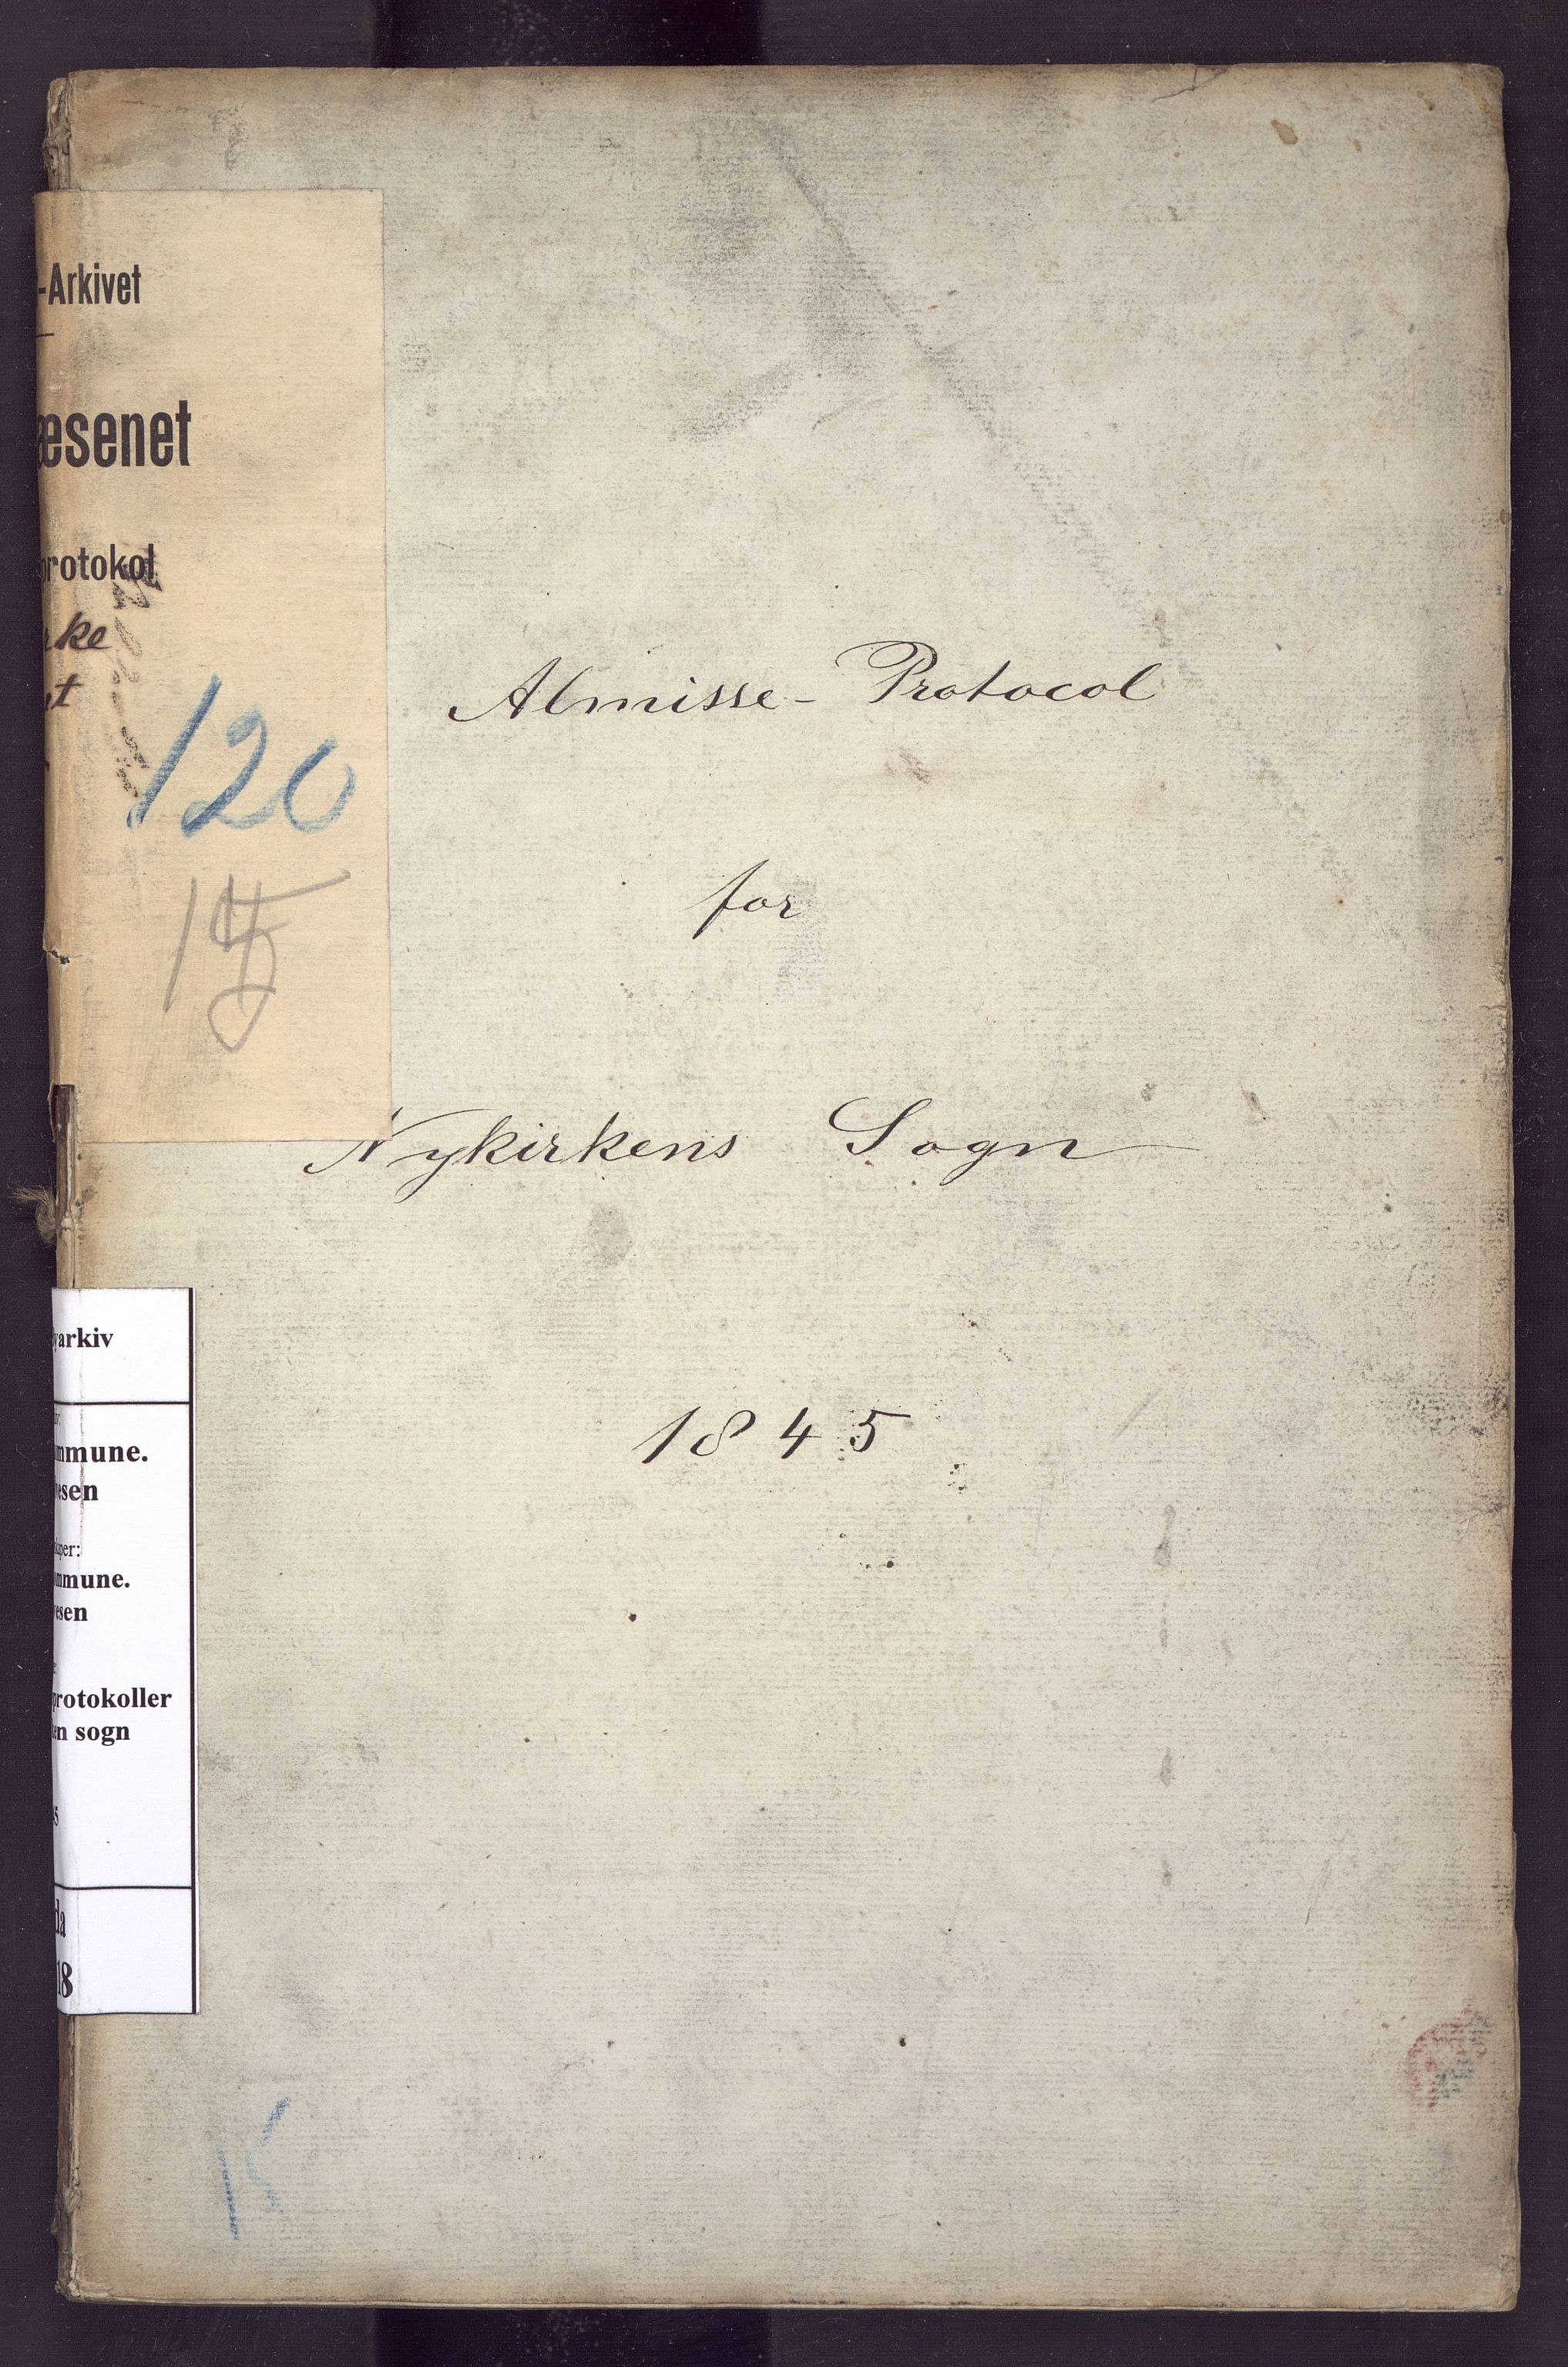 -Arkivet
æsenet
protokol
120
15
Almisse- Protocol
for
Nykirkens Sogn
1845
arkiv
mmune.
esen
per:
mmune.
esen
protokoller
en sogn
da
18
15